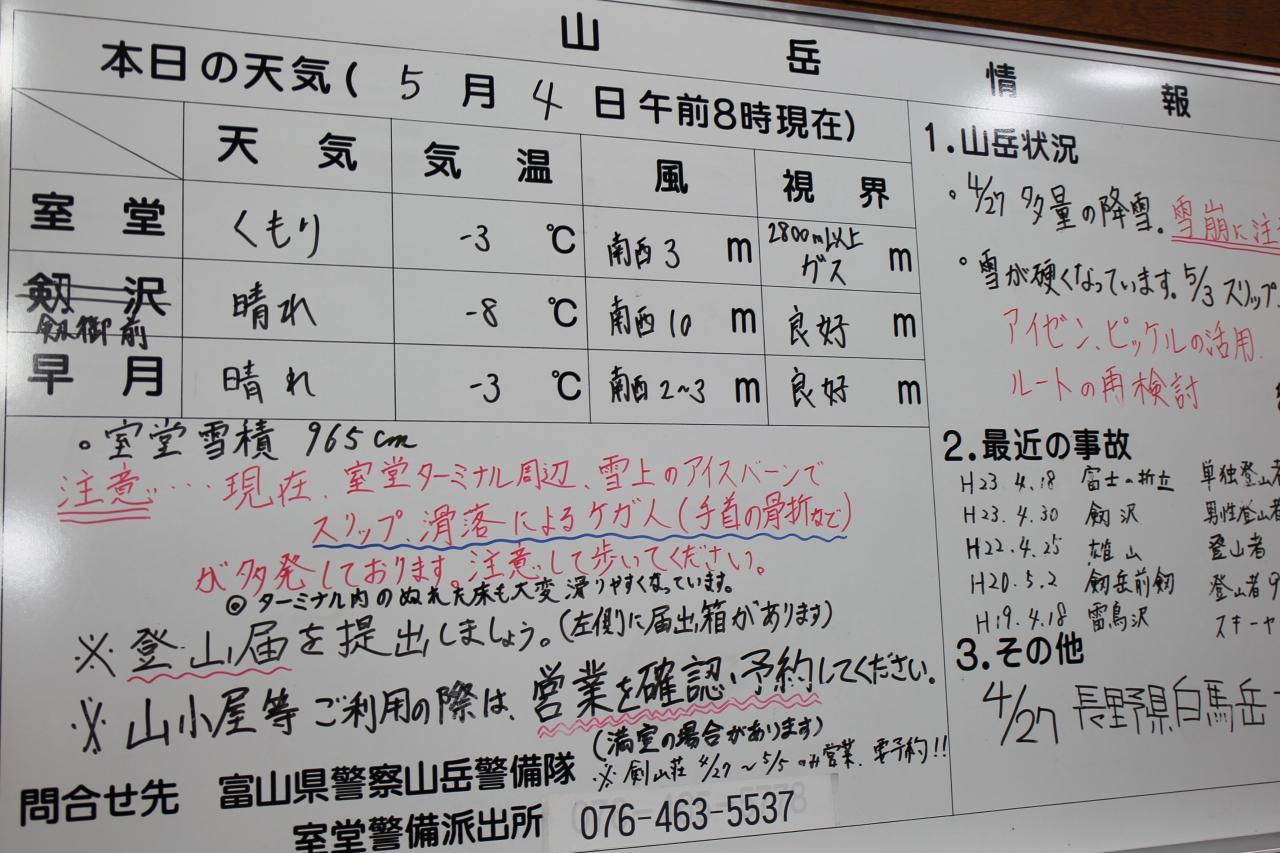 山岳情報
本日の天気( 5 月 4 日午前8時現在)
天気 気温 風 視界
室堂 くもり -3 ℃ 南西 3 m 2800m以上 ガス m
剱沢 剱御前 晴れ -8 ℃ 南西 10 m 良好 m
早月 晴れ -3 ℃ 南西 2~3 m 良好 m
。室堂雪積 965cm
注意…. 現在、室堂ターミナル周辺、雪上のアイスバーンで
スリップ、滑落によるケガ人(手首の骨折など)
が多発しております。注意して歩いてください。
◎ ターミナル内のぬれた床も大変滑りやすくなっています。
※ 登山届を提出しましょう。(左側に届出箱があります)
※ 山小屋等ご利用の際は、営業を確認、予約してください。
(満室の場合があります)
※ 剣山荘 4/27 ~ 5/5 のみ営業、要予約!!
問合せ先 富山県警察山岳警備隊
室堂警備派出所 076-463-5537
1.山岳状況
。4/27 多量の降雪。雪崩に注
。雪が硬くなっています。5/3 スリップ
アイゼン、ピッケルの活用
ルートの再検討
2.最近の事故
H23.4.18 富士の折立 単独登山者
H23.4.30 剱沢 男性登山者
H22.4.25 雄山 登山者
H20.5.2 剱岳前剱 登山者
H19.4.18 雷鳥沢 スキーヤ
3.その他
4/27 長野県白馬岳